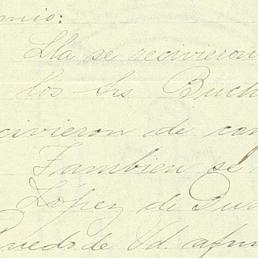 mio:
Lla se recivieron
los Srs Buch
civieron de can
Tambien se
Lopez de Dur
Quedo de Vd. afm